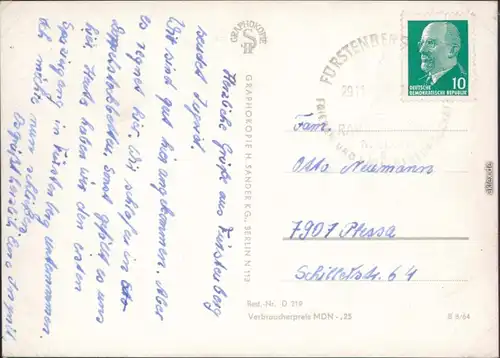 Herzliche Grüße aus Fürstenberg
sendet Ingrid.
Wir sind gut hier angekommen. Aber
es regnet hier. Wir schlafen in
Doppelstockbetten. Sonst gefällt es uns
gut. Heute haben wir den ersten
Spaziergang in Fürstenberg unternommen.
Ich möchte nun schließen
Es grüßt herzlich Eure Ingrid
GRAPHOKOPIE
GRAPHOKOPIE H. SANDER KG., BERLIN N 113
FÜRSTENBERG
DEUTSCHE
DEMOKRATISCHE REPUBLIK
10
Fam.
Otto Neumann
7901 Plessa
Schillerstr. 64
Best.-Nr. D 219
Verbraucherpreis MDN -,25
B 6/64